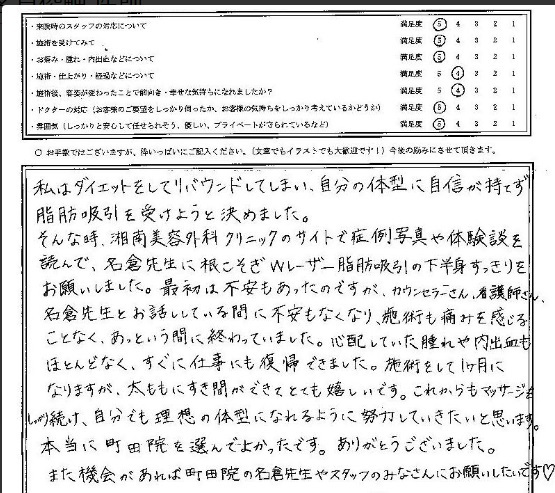 ・来院時のスタッフの対応について 満足度 5 4 3 2 1
・施術を受けてみて 満足度 5 4 3 2 1
・お痛み・腫れ・内出血などについて 満足度 5 4 3 2 1
・施術・仕上がり・経過などについて 満足度 5 4 3 2 1
・施術後、容姿が変わったことで前向き・幸せな気持ちになれましたか？ 満足度 5 4 3 2 1
・ドクターの対応（お客様のご要望をしっかり伺ったか、お客様の気持ちをしっかり考えているかどうか） 満足度 5 4 3 2 1
・雰囲気（しっかりと安心して任せられそう、優しい、プライベートが守られているなど） 満足度 5 4 3 2 1
○ お手数ではございますが、枠いっぱいにご記入ください。（文章でもイラストでも大歓迎です！）今後の励みにさせて頂きます。
私はダイエットをしてリバウンドしてしまい、自分の体型に自信が持てず
脂肪吸引を受けようと決めました。
そんな時、湘南美容外科クリニックのサイトで症例写真や体験談を
読んで、名倉先生に根こそぎWレーザー脂肪吸引の下半身すっきりを
お願いしました。最初は不安もあったのですが、カウンセラーさん、看護師さん、
名倉先生とお話している間に不安もなくなり、施術も痛みを感じる
ことなく、あっという間に終わっていました。心配していた腫れや内出血も
ほとんどなく、すぐに仕事にも復帰できました。施術をして1ヶ月に
なりますが、太ももにすき間ができてとても嬉しいです。これからもマッサージを
しっかり続け、自分でも理想の体型になれるように努力していきたいと思います。
本当に町田院を選んでよかったです。ありがとうございました。
また機会があれば町田院の名倉先生やスタッフのみなさんにお願いしたいです♡